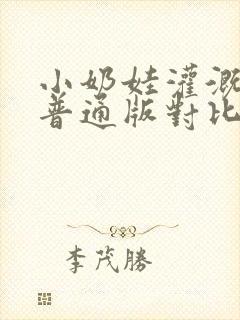 小奶娃灌溉
普通版對比
李茂勝